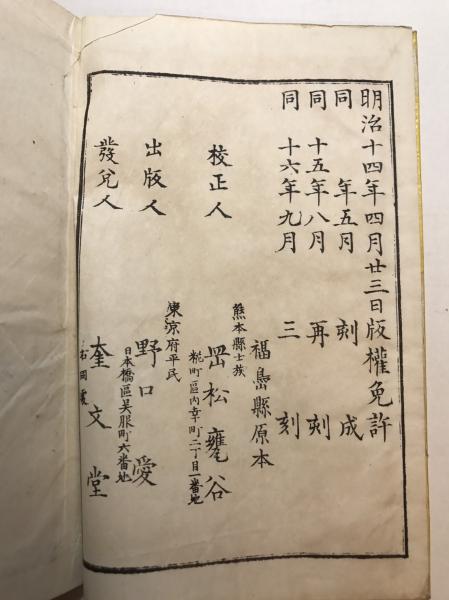 明治十四年四月廿三日版權免許
同　年五月　刻成
同　十五年八月　再刻
同　十六年九月　三刻
福島縣原本
校正人
熊本縣士族
岡松甕谷
麹町區内幸町二丁目一番地
出版人
東京府平民
野口愛
日本橋區吴服町六番地
發兌人
奎文堂